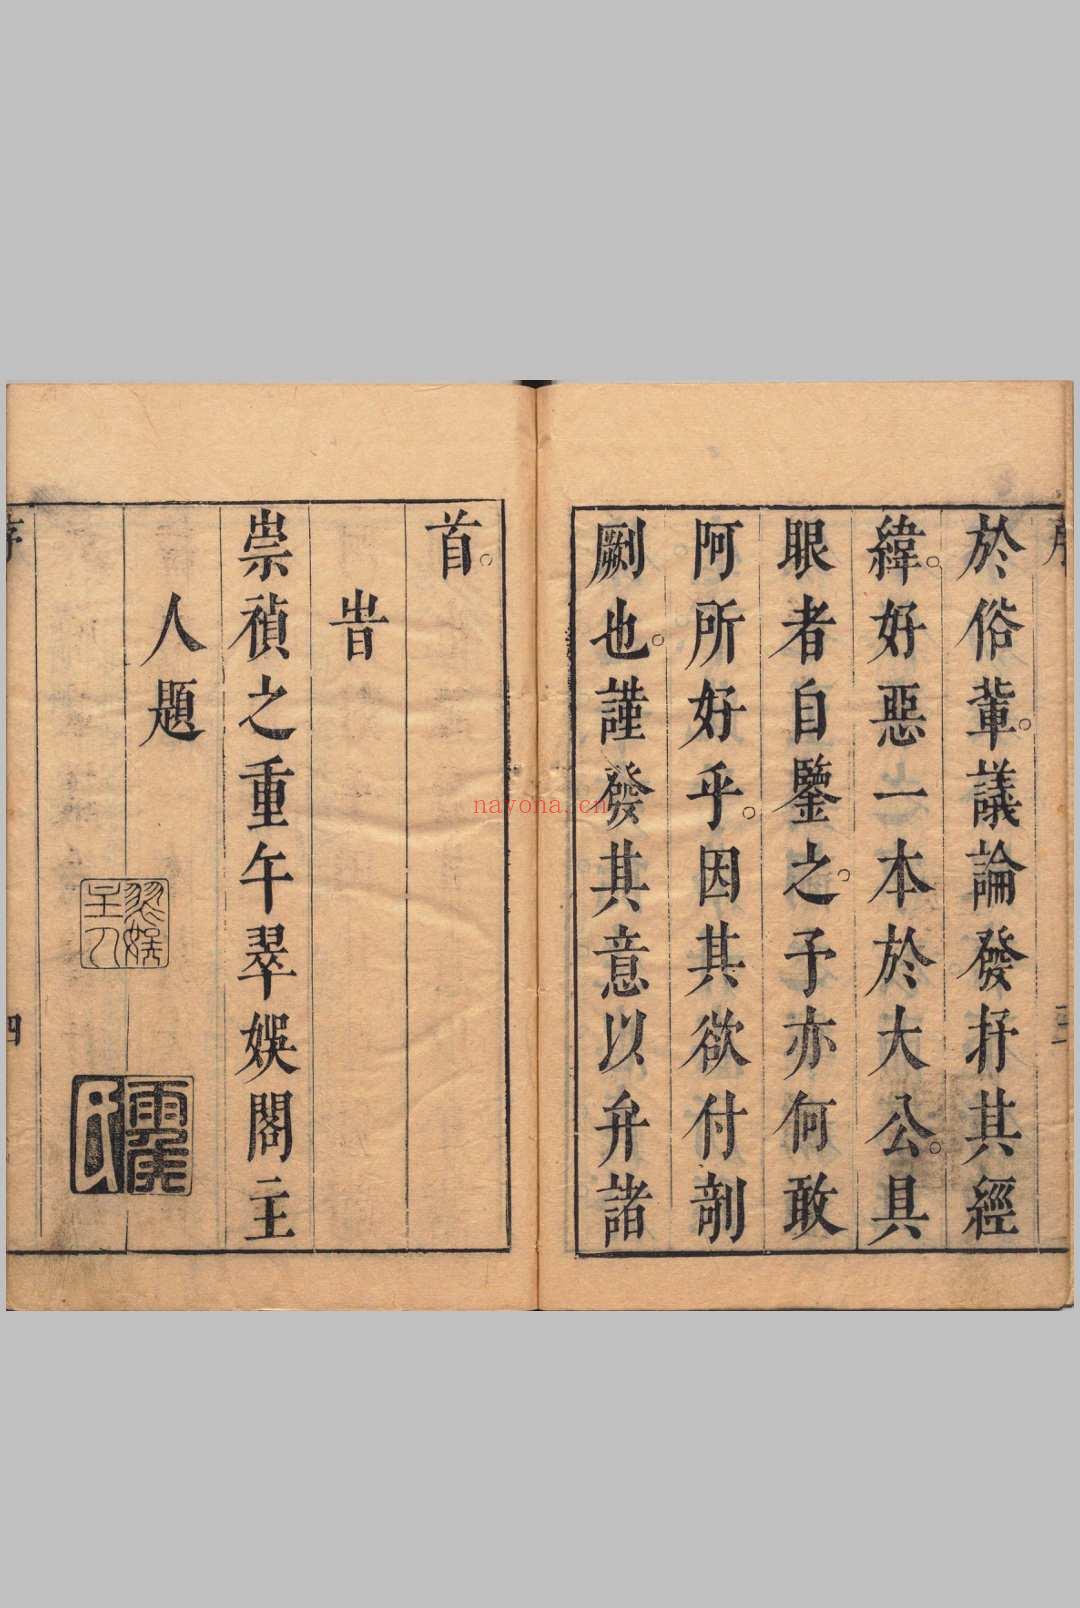 於俗輩。議論發抒其經
緯。好惡一本於大公。具
眼者自鑒之。予亦何敢
阿所好乎。因其欲付剞
劂也。謹發其意以弁諸
首。
旹
崇禎之重午翠娛閣主
人題
翠娛主人
四
nayona.cn